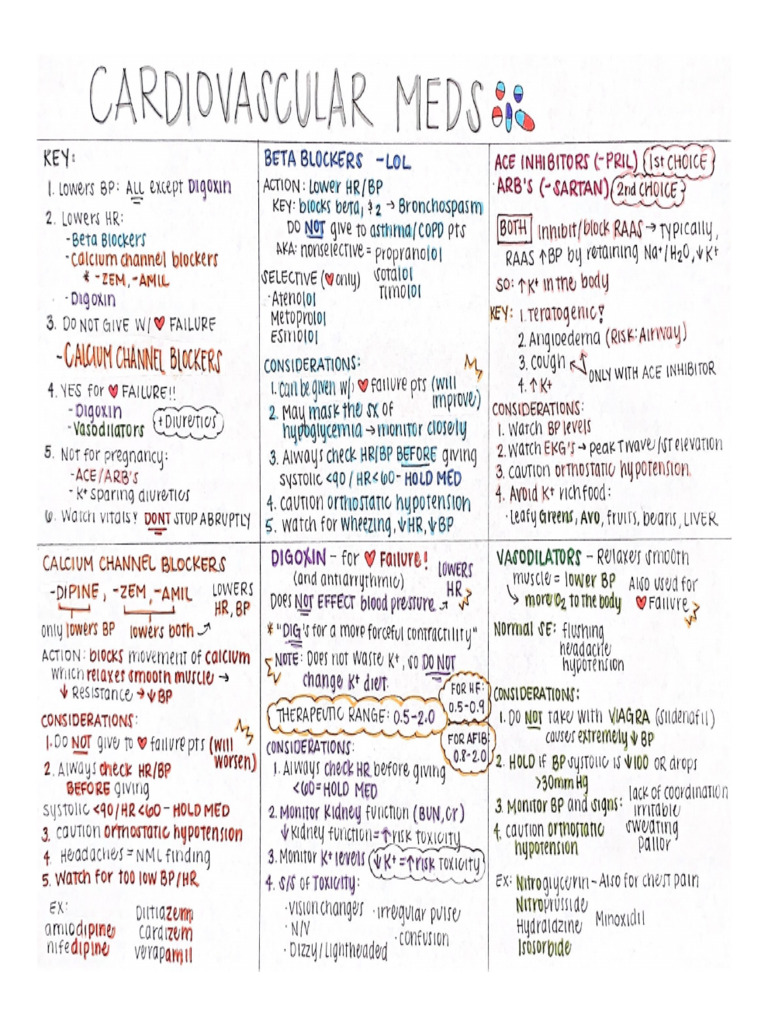 CARDIOVASCULAR MEDS
KEY:
1. Lowers BP: ALL except DIGOXIN
2. Lowers HR:
-Beta Blockers
-Calcium channel blockers
* -ZEM, -AMIL
-Digoxin
3. DO NOT GIVE W/ ♥ FAILURE
-CALCIUM CHANNEL BLOCKERS
4. YES for ♥ FAILURE!!
-Digoxin
-Vasodilators
+Diuretics
5. Not for pregnancy:
-ACE/ARB'S
-K+ sparing diuretics
6. Watch vitals! DONT STOP ABRUPTLY
BETA BLOCKERS -LOL
ACTION: Lower HR/BP
KEY: blocks beta, & 2 → Bronchospasm
DO NOT give to asthma/COPD pts
AKA: nonselective = propranolol
sotalol
Timolol
SELECTIVE (♥ only)
·Atenolol
Metoprolol
Esmolol
CONSIDERATIONS:
1. can be given w/ ♥ failure pts (will improve)
2. May mask the sx of
hypoglycemia → monitor closely
3. Always check HR/BP BEFORE giving
systolic <90 / HR<60 - HOLD MED
4. caution orthostatic hypotension
5. watch for wheezing, ↓HR, ↓BP
ACE INHIBITORS (-PRIL) 1st CHOICE
·ARB'S (-SARTAN) 2nd CHOICE
BOTH inhibit/block RAAS → typically,
RAAS ↑BP by retaining Na+/H2O, ↓K+
SO: ↑K+ in the body
KEY: 1. Teratogenic!
2. Angioedema (RISK: Airway)
3. cough
ONLY WITH ACE INHIBITOR
4. ↑ K+
CONSIDERATIONS:
1. Watch BP levels
2. Watch EKG's → peak T wave/ST elevation
3. caution orthostatic hypotension
4. AVOID K+ rich food:
·Leafy Greens, Avo, fruits, beans, LIVER
CALCIUM CHANNEL BLOCKERS
-DIPINE, -ZEM, -AMIL
LOWERS
HR, BP
only lowers BP lowers both
ACTION: blocks movement of calcium
which relaxes smooth muscle →
↓ Resistance → ↓BP
CONSIDERATIONS:
1. Do NOT give to ♥ failure pts (will worsen)
2. Always check HR/BP
BEFORE giving
systolic <90/HR<60 - HOLD MED
3. caution orthostatic hypotension
4. Headaches = NML finding
5. Watch for too low BP/HR
EX:
amlodipine
nifedipine
Diltiazem
Cardizem
verapamil
DIGOXIN - for ♥ Failure!
(and antiarrythmic)
LOWERS
HR
Does NOT EFFECT blood pressure
* "DIG's for a more forceful contractility"
NOTE: Does not waste K+, so DO NOT
change K+ diet.
THERAPEUTIC RANGE: 0.5-2.0
FOR HF:
0.5-0.9
FOR AFIB:
0.8-2.0
CONSIDERATIONS:
1. Always check HR before giving
<60=HOLD MED
2. Monitor Kidney function (BUN,Cr)
↓ Kidney function = ↑risk toxicity
3. Monitor K+ levels ↓K+=↑risk TOXICITY
4. S/S of TOXICITY:
·Vision changes
·N/V
·Dizzy/Lightheaded
·irregular pulse
·confusion
VASODILATORS - Relaxes smooth
muscle = lower BP
more O2 to the body
Also used for
♥ Failure
Normal SE: flushing
headache
hypotension
CONSIDERATIONS:
1. DO NOT take with VIAGRA (sildenafil)
causes extremely ↓ BP
2. HOLD if BP systolic is ↓100 OR drops
>30mmHg
3. Monitor BP and signs:
lack of coordination
irritable
sweating
pallor
4. caution orthostatic
hypotension
EX: Nitroglycerin - Also for chest pain
Nitroprusside
Hydralazine
Isosorbide
Minoxidil